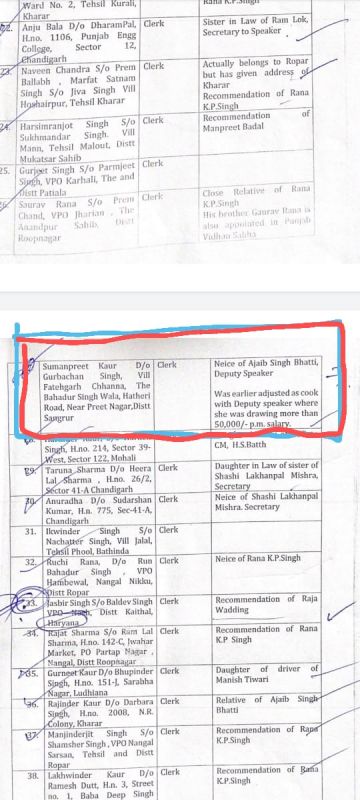 Ward No. 2, Tehsil Kurali,
Kharar
22. Anju Bala D/o DharamPal, Clerk Sister in Law of Ram Lok,
H.no. 1106, Punjab Engg Secretary to Speaker
College, Sector 12,
Chandigarh
23. Naveen Chandra S/o Prem Clerk Actually belongs to Ropar
Ballabh , Marfat Satnam but has given address of
Singh S/o Jiva Singh Vill Kharar
Hoshairpur, Tehsil Kharar Recommendation of Rana
K.P.Singh
24. Harsimranjot Singh S/o Clerk Recommendation of
Sukhmandar Singh. Vill Manpreet Badal
Mann, Tehsil Malout, Distt
Mukatsar Sahib
25. Gurjeet Singh S/o Parmjeet Clerk
Singh, VPO Karhali, The and
Distt Patiala
26 Saurav Rana S/o Prem Clerk Close Relative of Rana
Chand, VPO Jharian , The K.P.Singh
Anandpur Sahib, Distt His brother Gaurav Rana is
Roopnagar also appointed in Punjab
Vidhan Sabha
Sumanpreet Kaur D/o Clerk Neice of Ajaib Singh Bhatti,
Gurbachan Singh, Vill Deputy Speaker
Fatehgarh Chhanna, The
Bahadur Singh Wala, Hatheri Was earlier adjusted as cook
Road, Near Preet Nagar,Distt with Deputy speaker where
Sangrur she was drawing more than
50,000/- p.m. salary.
Singh, H.no. 214, Sector 39- Clerk CM, H.S.Batth
West, Sector 122, Mohali
29. Taruna Sharma D/o Heera Clerk Daughter in Law of sister of
Lal Sharma , H.no. 26/2, Shashi Lakhanpal Mishra,
Sector 41-A Chandigarh Secretary
30. Anuradha D/o Sudarshan Clerk Neice of Shashi Lakhanpal
Kumar, H.n. 775, Sec-41-A, Mishra. Secretary
Chandigarh
31. Ikwinder Singh S/o Clerk
Nachatter Singh, Vill Jalal,
Tehsil Phool, Bathinda
32. Ruchi Rana, D/o Run Clerk Neice of Rana K.P.Singh
Bahadur Singh , VPO
Hambewal, Nangal Nikku,
Distt Ropar
33. Jasbir Singh S/o Baldev Singh Clerk Recommendation of Raja
VPO Nagh, Distt Kaithal, Wadding
Haryana
34. Rajat Sharma S/o Ram Lal Clerk Recommendation of Rana
Sharma, H.no. 142-C, Jwahar K.P Singh
Market, PO Partap Nagar ,
Nangal, Distt Roopnagar
35. Gurneet Kaur D/o Bhupinder Clerk Daughter of driver of
Singh, H.no. 151-J, Sarabha Manish Tiwari
Nagar, Ludhiana
36. Rajinder Kaur D/o Darbara Clerk Relative of Ajaib Singh
Singh, H.no. 2008, N.R. Bhatti
Colony, Kharar
37. Manjinderjit Singh S/o Clerk Recommendation of Rana
Shamsher Singh , VPO Nangal K.P.Singh
Sarsaa, Tehsil and Distt
Ropar
38. Lakhwinder Kaur D/o Clerk Recommendation of Rana
Ramesh Dutt, H.n. 3, Street K.P.Singh
no. 1, Baba Deep Singh